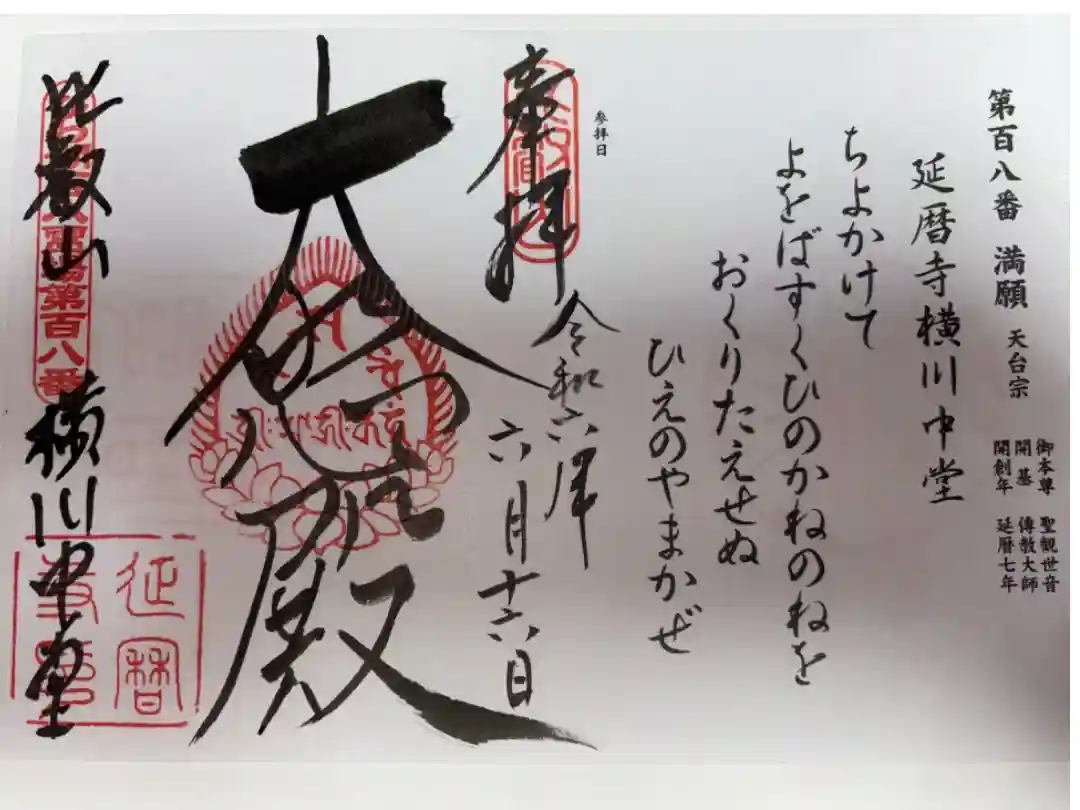 第百八番 満願 天台宗
御本尊 聖観世音
開基 傳教大師
開創年 延暦七年
延暦寺横川中堂
ちよかけて
よをばすくひのかねのねを
おくりたえせぬ
ひえのやまかぜ
参拝日
奉拝
令和六年
六月十六日
大悲殿
比叡山 横川中堂
霊場第百八番
延暦